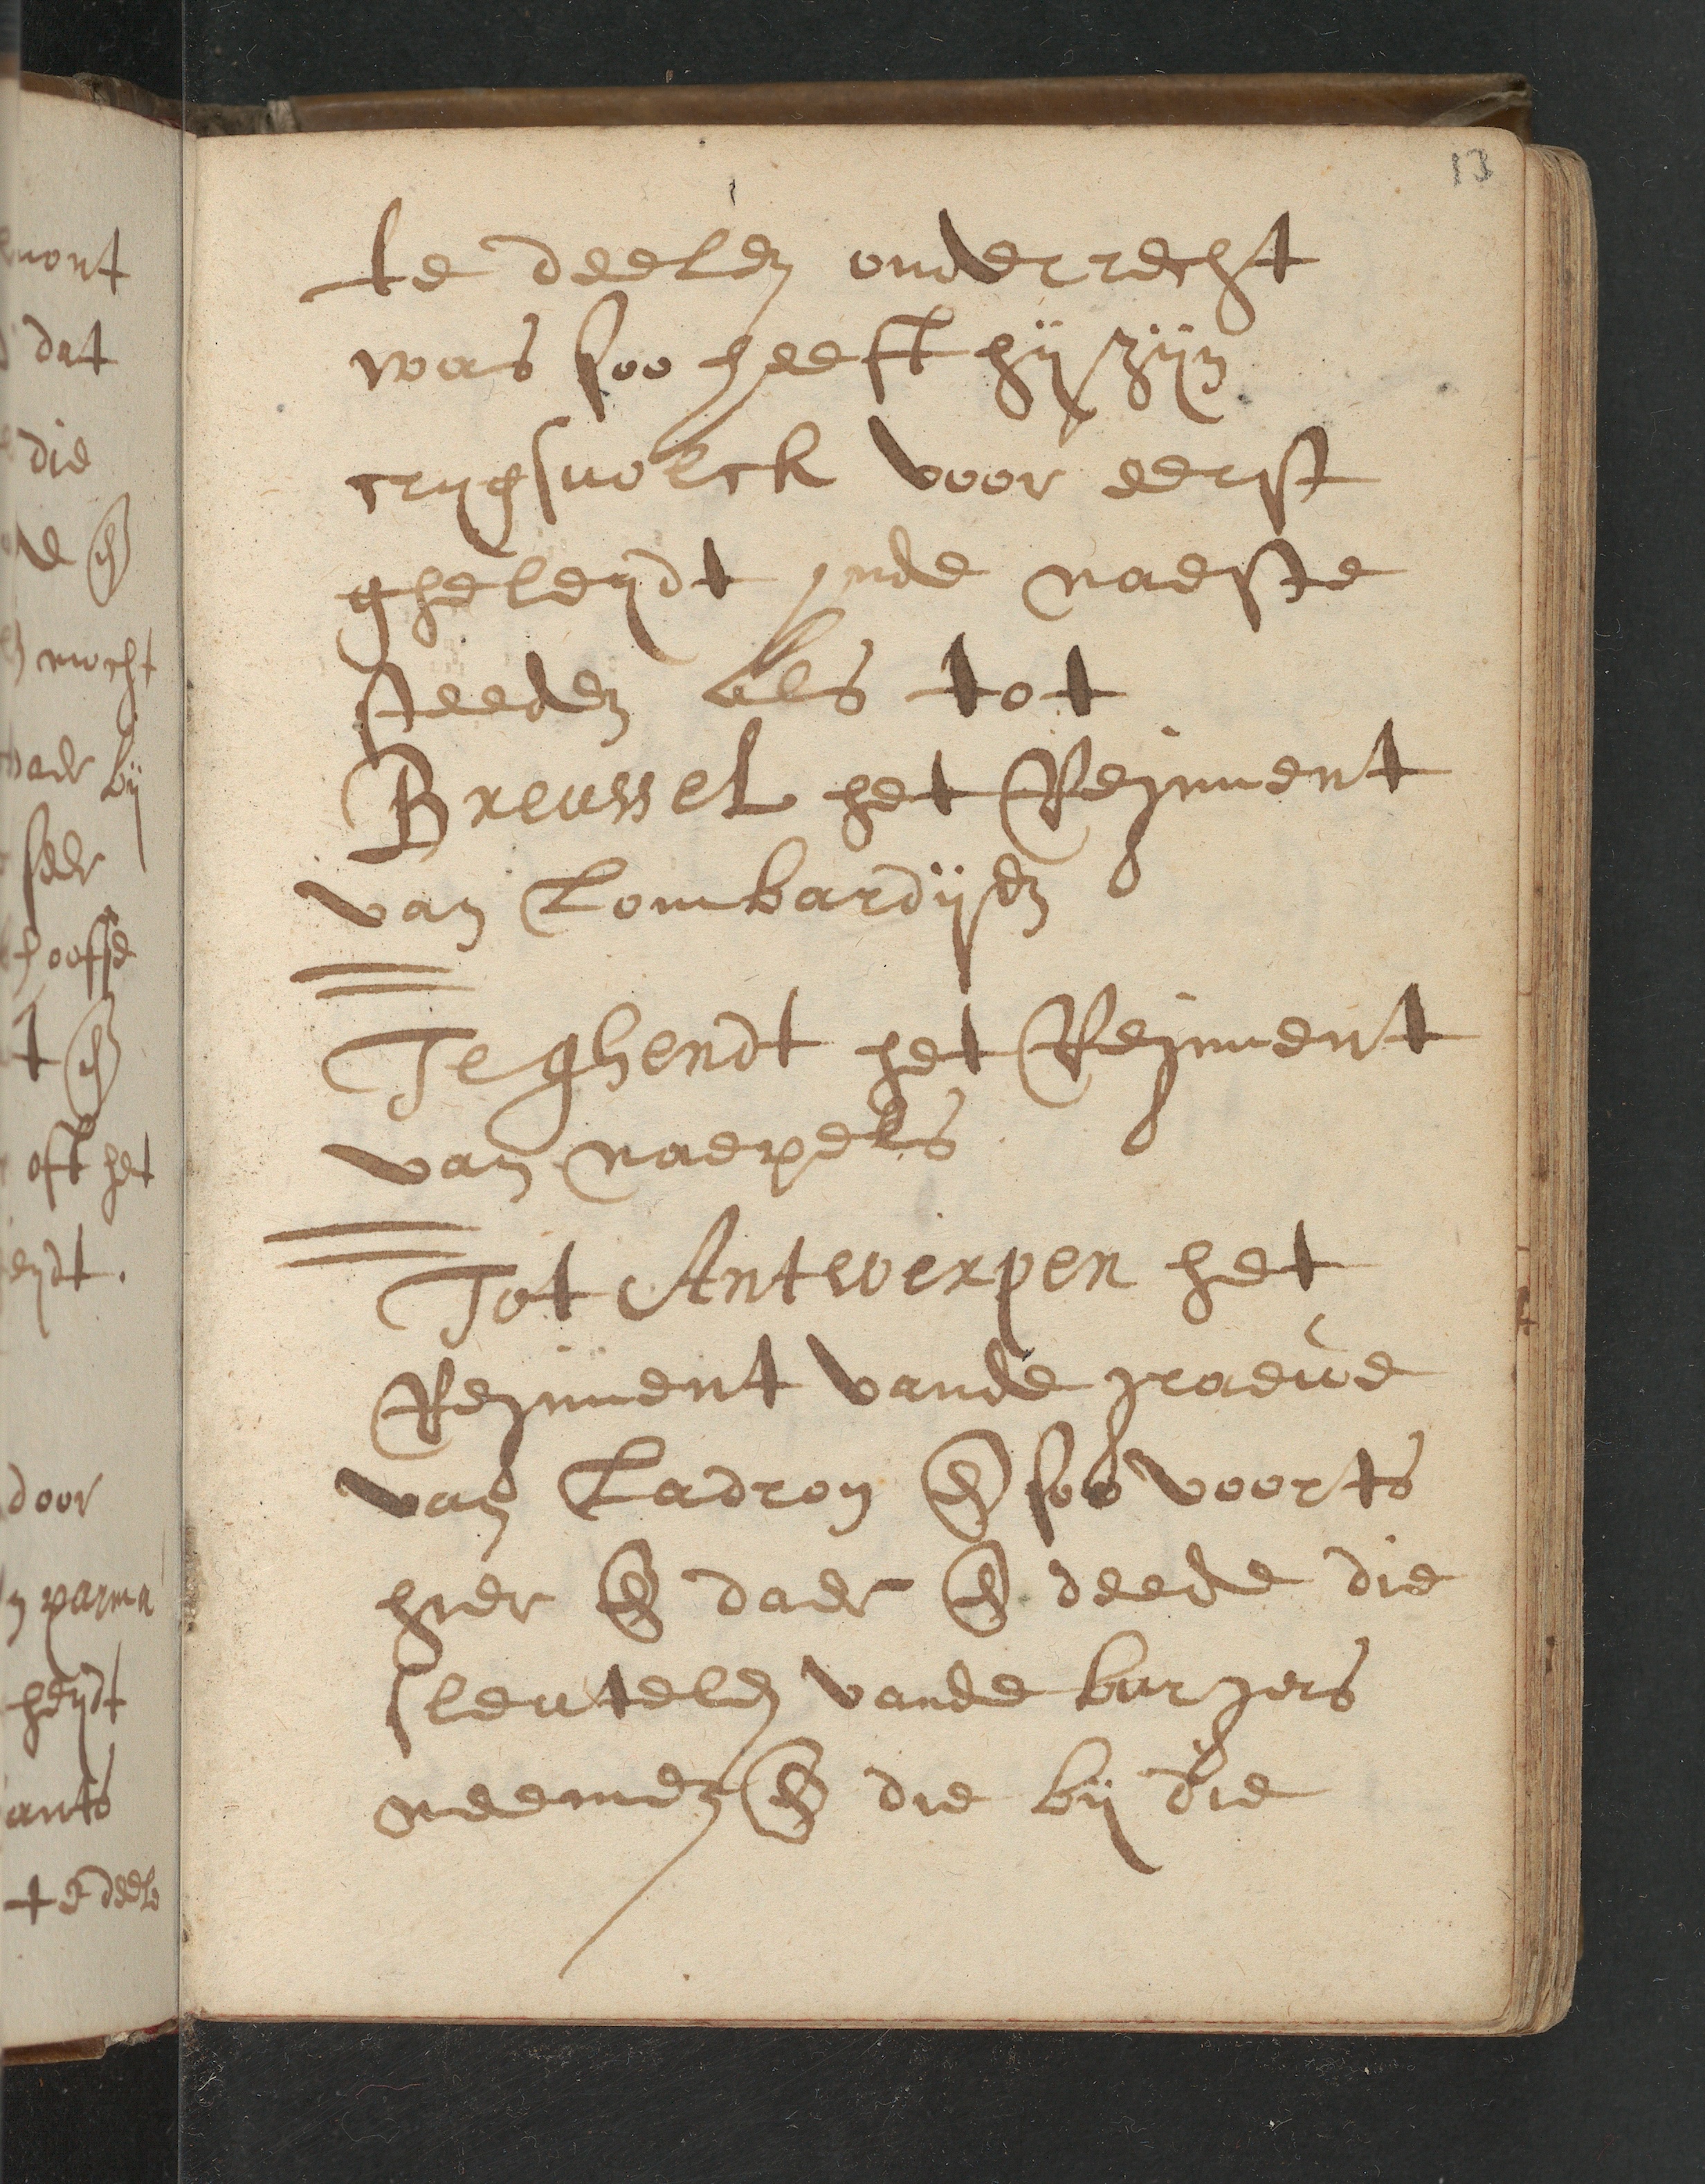 13
te deelen onderrecht
was soo heeft hij zijn
crijgsuolck voor eerst
gheleijdt inde naeste
steeden als tot
Breussel het Regiment
van Lombardijen
Te ghendt het Regiment
van naepels
Tot Antwerpen het
Regiment vande graeue
van Ladron en soo voorts
hier en daer en deede die
sleutelen vande burgers
neemen en die bij die
mont
dat
die
mocht
bij
seer
oft het
eijdt.
door
parma
heijt
ants
te deele